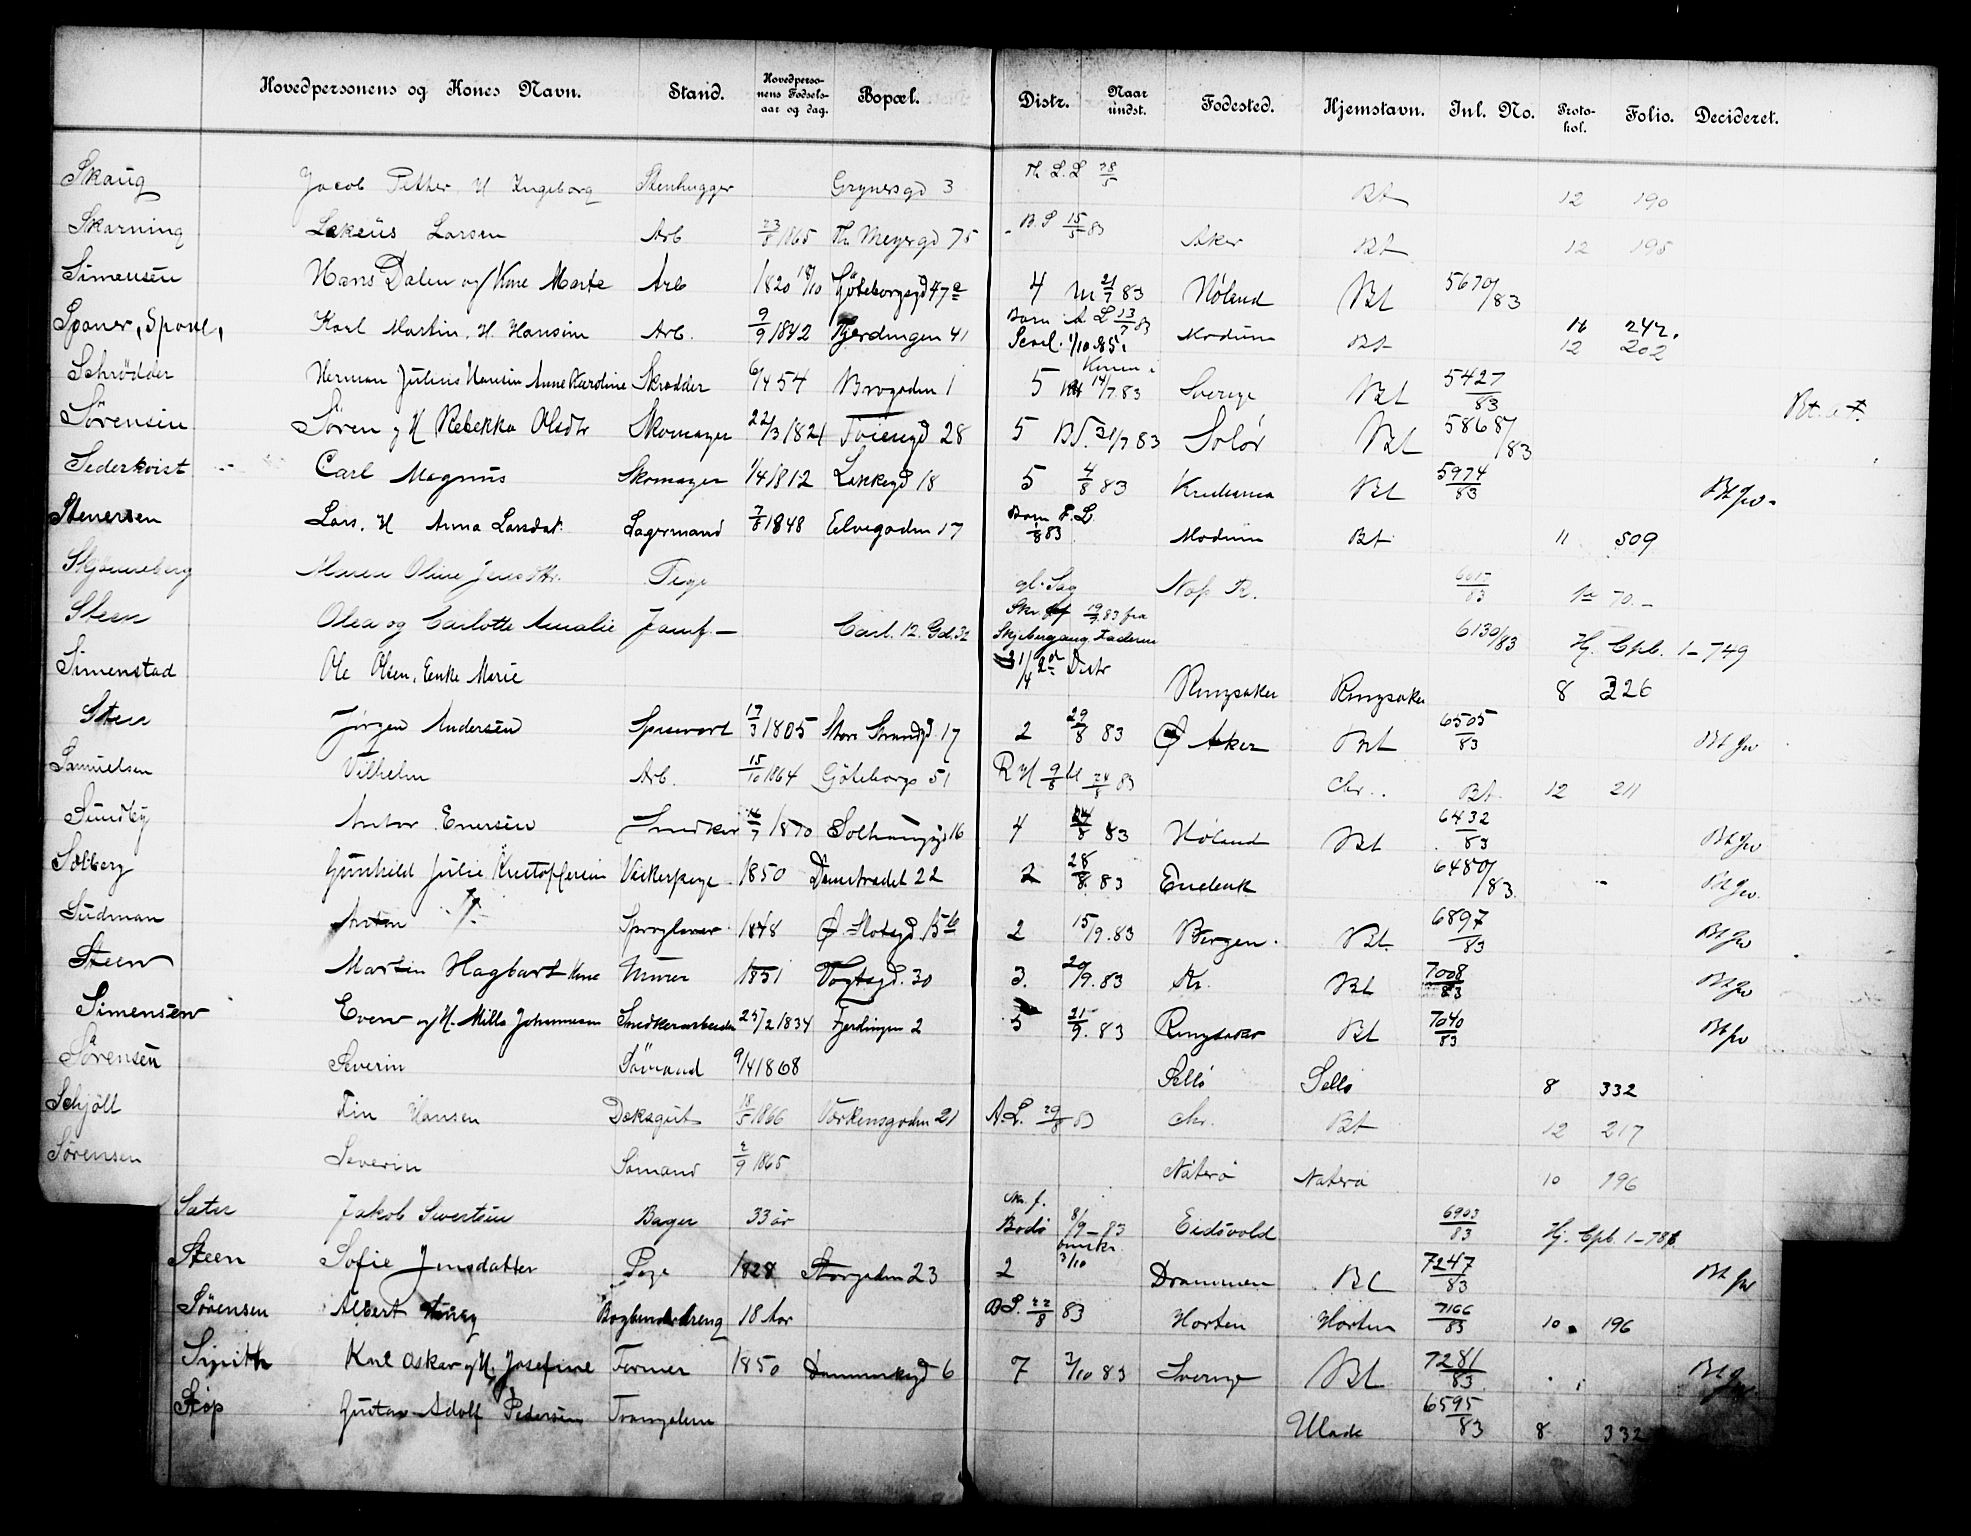 Hovedpersonens og Kones Navn. Stand. Hovedpersonens Fodselsaar og dag. Bopæl. Distr. Naar undst. Fodested. Hjemstavn. Inl. No. Protokol. Folio. Decideret.
Skaug Jacob Petter H Ingeborg Stenhugger Grynersgd 3 Th. L. L 28/5 Bt 12 190
Skarning Larsen Arb 23/8 1865 Th Meyersgd 75 B. S 15/5 83 Aker Bt 12 195
Simensen Hans Dalen og Kone Marte Arb 1820 18/10 Göteborggd 47 a 4 21/7 83 Höland Bt 5670/83
Karl Martin, H. Hansine Arb. 9/9 1842 Fjerdingen 41 Barn A L 13/7 83 1/10 85 Modum Bt 11 242. 12 202
Schrödder Herman Julius Hansen Anne Karoline Skrædder 6/4 54 Brogaden 1 5 14/7 83 Sverige Bt 5427/83
Sörensen Sören og H Rebekka Olsdtr Skomager 22/3 1821 Töiengd 28 5 B S. 31/7 83 Solör Bt 5868/83
Sederkvist Carl Magnus Skomager 1/4 1812 Lakkegd 18 5 4/8 83 Kristiania Bt 5974/83 Bt Jw.
Stenersen Lars, H Anna Larsdat. Lagermand 7/8 1848 Elvegaden 17 Barn F. L. 1/8 83 Modum Bt 11 509
Skjønneberg Maren Oline Pige gl. Sag 83 70.
Steen Olea og Carlotte Amalie Jomf. Carl. 12. Gd. 32 19/7 83 fra Faderen 6130/83 Hj. Cpb. 1-749
Simenstad Ole Olsen, Enke Marie 21/4 2 Distr Ringsaker Ringsaker 8 326
Steen Jörgen Andersen 17/3 1805 Store Strandgd 17 2 29/8 83 Ø Aker Bt 6505/83 Bt Jw
Samuelsen Vilhelm Arb. 15/10 1864 Göteborgs 51 24/8 83 Chr. Bt. 12 211
Sundby Anton Enersen Snedker 1870 16 4 83 Höland Bt 6432/83 Bt Jw
Solberg Gunhild Julie Kristoffersen Vaskerpige 1850 Damstrædet 22 2 28/8 83 Enebak 6480/83 Bt Jw.
Sudman Anton Sproglærer 1848 Ø Slotsgd. 15 b 2 15/9. 83 Bergen. Bt 6897/83 Bt Jw
Steen Martin Hagbart Kone Murer 1851 Vogtsgd. 30 3. 20/9. 83 Kr. Bt 7008/83 Bt Jw
Simensen Even og H. Mille Johannesen Snedkerarbeider 25/2 1834 Fjerdingen 2 5 21/9. 83 Ringsaker Bt 7040/83 Bt Jw
Sörensen Severin Sömand 9/4 1868 8 332
Schjöll Fin Hansen Daksgut 18/5 1866 Værkensgaden 21 A. L. 29/8 83 Chr. Bt 12 217
Sørensen Severin Sømand 2/9 1865 Nøterø Nøterø 10 196
Sæter Jakob Sivertsen Bager 33 år Bodö 8/9 - 83 Eidsvold 6903/83 Hj. Cpb. 1-78
Steen Sofie Jensdatter Pige 1828 Storgaden 23 2 3/10 Drammen Bt 7247/83 Bt Jw
Sörensen Albert Bogbinderdreng 18 Aar B S. 22/8 83 Horten Horten 7166/83 10 196
Karl Oskar og H. Josefine Former 1850 Danmarksgd 6 7 2/10 83 Sverige Bt 7281/83 Bt Jw
Støp Gustav Adolf Pedersen Tvangslem 6595/83 8 332